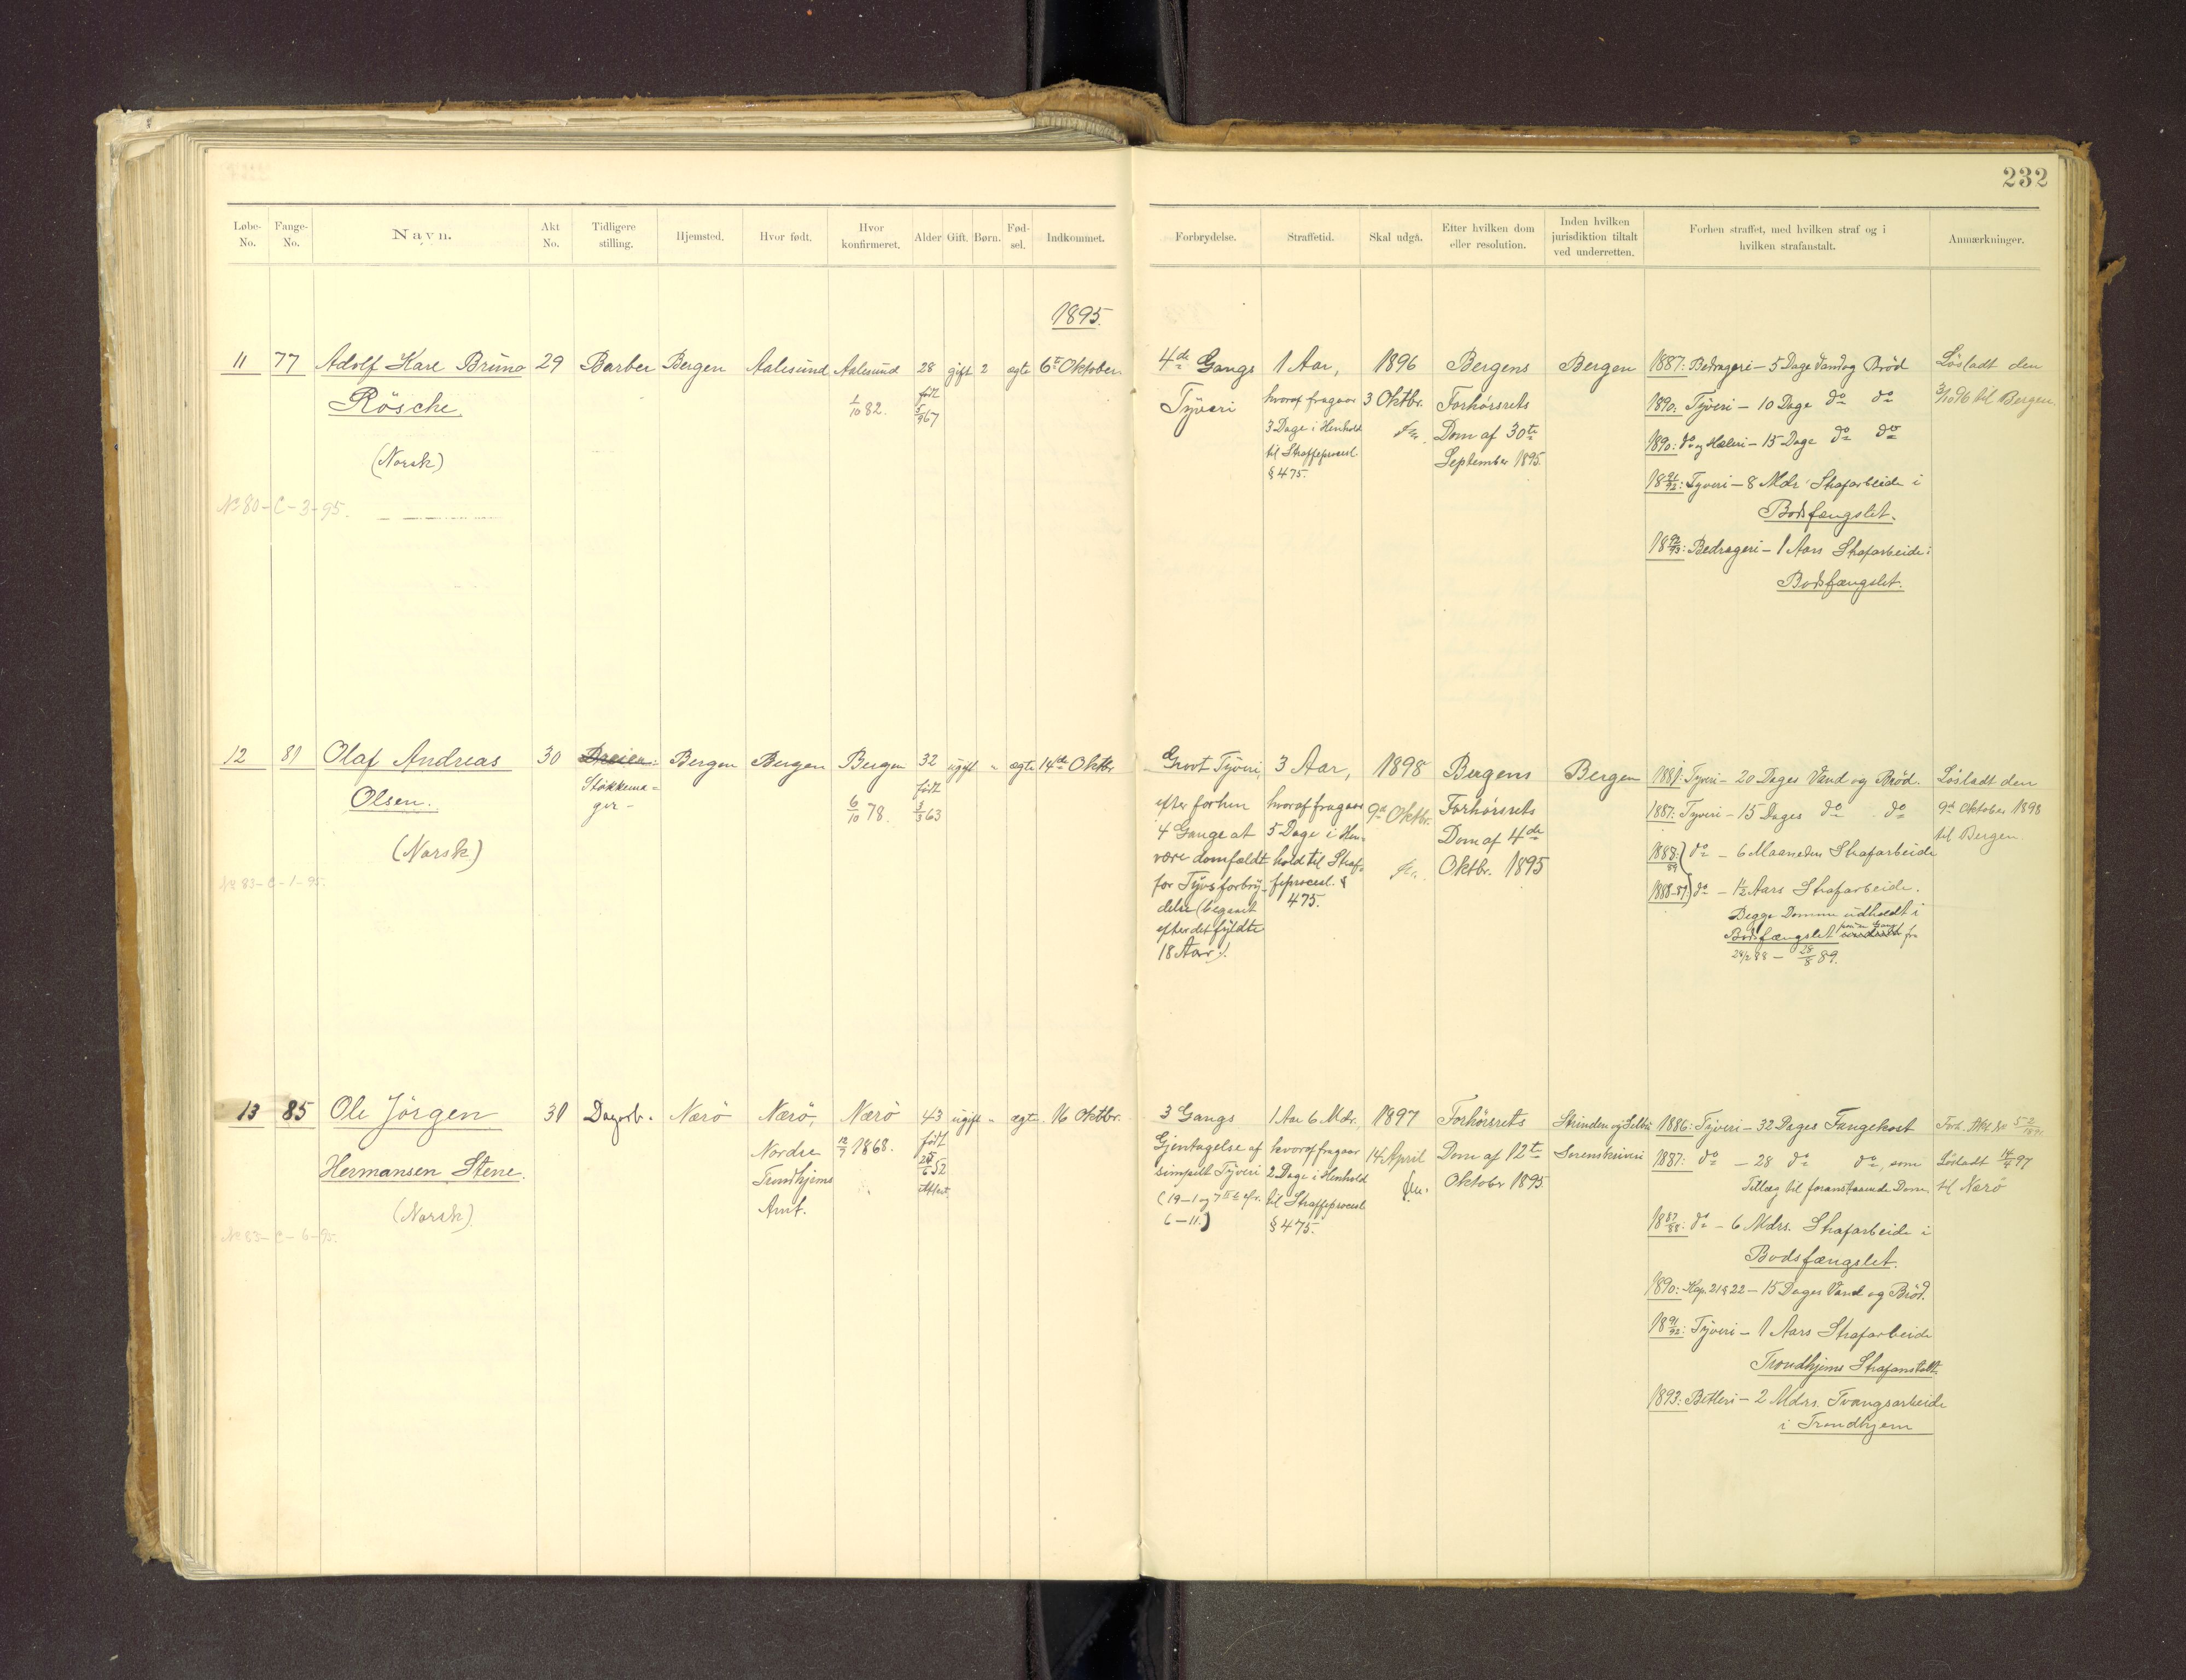 232
Løbe-No. Fange-No. Navn. Akt No. Tidligere stilling. Hjemsted. Hvor født. Hvor konfirmeret. Alder Gift. Børn. Fødsel. Indkommet.
Forbrydelse. Straffetid. Skal udgå. Efter hvilken dom eller resolution. Inden hvilken jurisdiktion tiltalt ved underretten. Forhen straffet, med hvilken straf og i hvilken strafanstalt. Anmærkninger.
1895.
11 77 Adolf Karl Bruno 29 Barber Bergen Aalesund Aalesund 28 gift 2 ægte 6te Oktober
Rösche.
1/10 82.
født
5/9 67
(Norsk)
No 80-C-3-95.
4de Gangs
Tyveri
1 Aar,
hvoraf fragaar
3 Dage i Henhold
til Straffeprocesl.
§ 475.
1896
3 Oktbr.
Bergens
Forhørsrets
Dom af 30te
September 1895.
Bergen
1887: Bedrageri - 5 Dage Vand og Brød
1890: Tyveri - 10 Dage do do
1890: do og Hæleri - 15 Dage do do
1891/92: Tyveri - 8 Mdr. Strafarbeide i
Bodsfængslet.
1892/93: Bedrageri - 1 Aars Strafarbeide i
Bodsfængslet.
Løsladt den
3/10 96 til Bergen.
12 81 Olaf Andreas 30 Bergen Bergen Bergen 32 ugift " ægte 14de Oktbr
Olsen.
Støkkema=
ger -
6/10 78.
født
3/3 63
(Norsk)
No 83-C-1-95.
Grovt Tyveri
efter forhen
4 Gange at
være domfældt
for Tyvsforbry-
delse (begaaet
efter det fyldte
18 Aar).
3 Aar,
hvoraf fragaar
5 Dage i Hen-
hold til Straf-
feprocesl. §
475.
1898
9de Oktbr.
Bergens
Forhørsrets
Dom af 4de
Oktbr. 1895
Bergen
1881: Tyveri - 20 Dages Vand og Brød.
1887: Tyveri - 15 Dages do do
1888/89) do - 6 Maaneders Strafarbeide
1888-89.) do - 1½ Aars Strafarbeide.
Begge Domme udholdt i
Bodsfængslet fra
24/2 88 - 28/8 89.
Løsladt den
9de Oktober 1898
til Bergen
13 85 Ole Jörgen 31 Dagarb. Nærö Nærö, Nærö 43 ugift " ægte 16 Oktbr.
Hermansen Stene.
Nordre
Trondhjems
Amt.
12/7 1868.
født
25/6 52
Attest
(Norsk)
No 83-C-6-95.
3 Gangs
Gjentagelse af
simpelt Tyveri
(19-1 og 7 cfr.
6-11.)
1 Aar 6 Mdr.,
hvoraf fragaar
2 Dage i Henhold
til Straffeprocesl.
§ 475.
1897
14 April
Forhørsrets
Dom af 12te
Oktober 1895
Strinden og Selbu
Sorenskriveri
1886: Tyveri - 32 Dages Fangekost
1887: do - 28 do do, som
Tillæg til foranstaaende Dom.
1887/88: do - 6 Mdrs. Strafarbeide i
Bodsfængslet.
1890: Kap. 21 § 22 - 15 Dages Vand og Brød.
1891/92: Tyveri - 1 Aars Strafarbeide
Trondhjems Strafanstalt.
1893: Betleri - 2 Mdrs. Tvangsarbeide
i Trondhjem
Løsladt 14/4 97
til Nærö